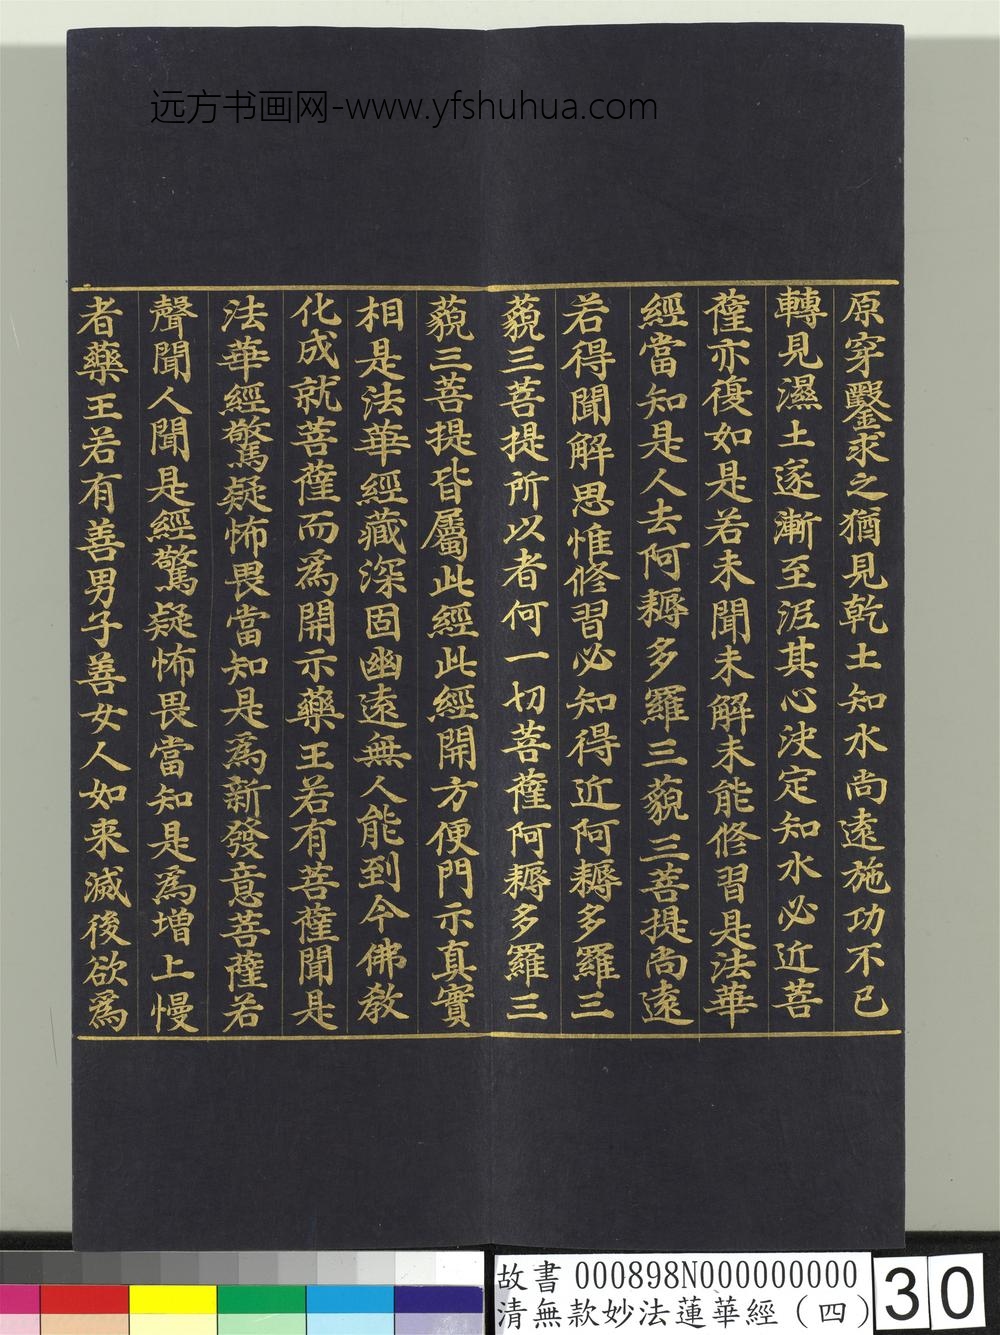 远方书画网-www.yfshuhua.com
原穿鑿求之猶見乾土知水尚遠施功不已
轉見濕土遂漸至泥其心決定知水必近菩
薩亦復如是若未聞未解未能修習是法華
經當知是人去阿耨多羅三藐三菩提尚遠
若得聞解思惟修習必知得近阿耨多羅三
藐三菩提所以者何一切菩薩阿耨多羅三
藐三菩提皆屬此經此經開方便門示真實
相是法華經藏深固幽遠無人能到今佛教
化成就菩薩而為開示藥王若有菩薩聞是
法華經驚疑怖畏當知是為新發意菩薩若
聲聞人聞是經驚疑怖畏當知是為增上慢
者藥王若有善男子善女人如來滅後欲為
故書 000898N000000000
清無款妙法蓮華經（四）
30